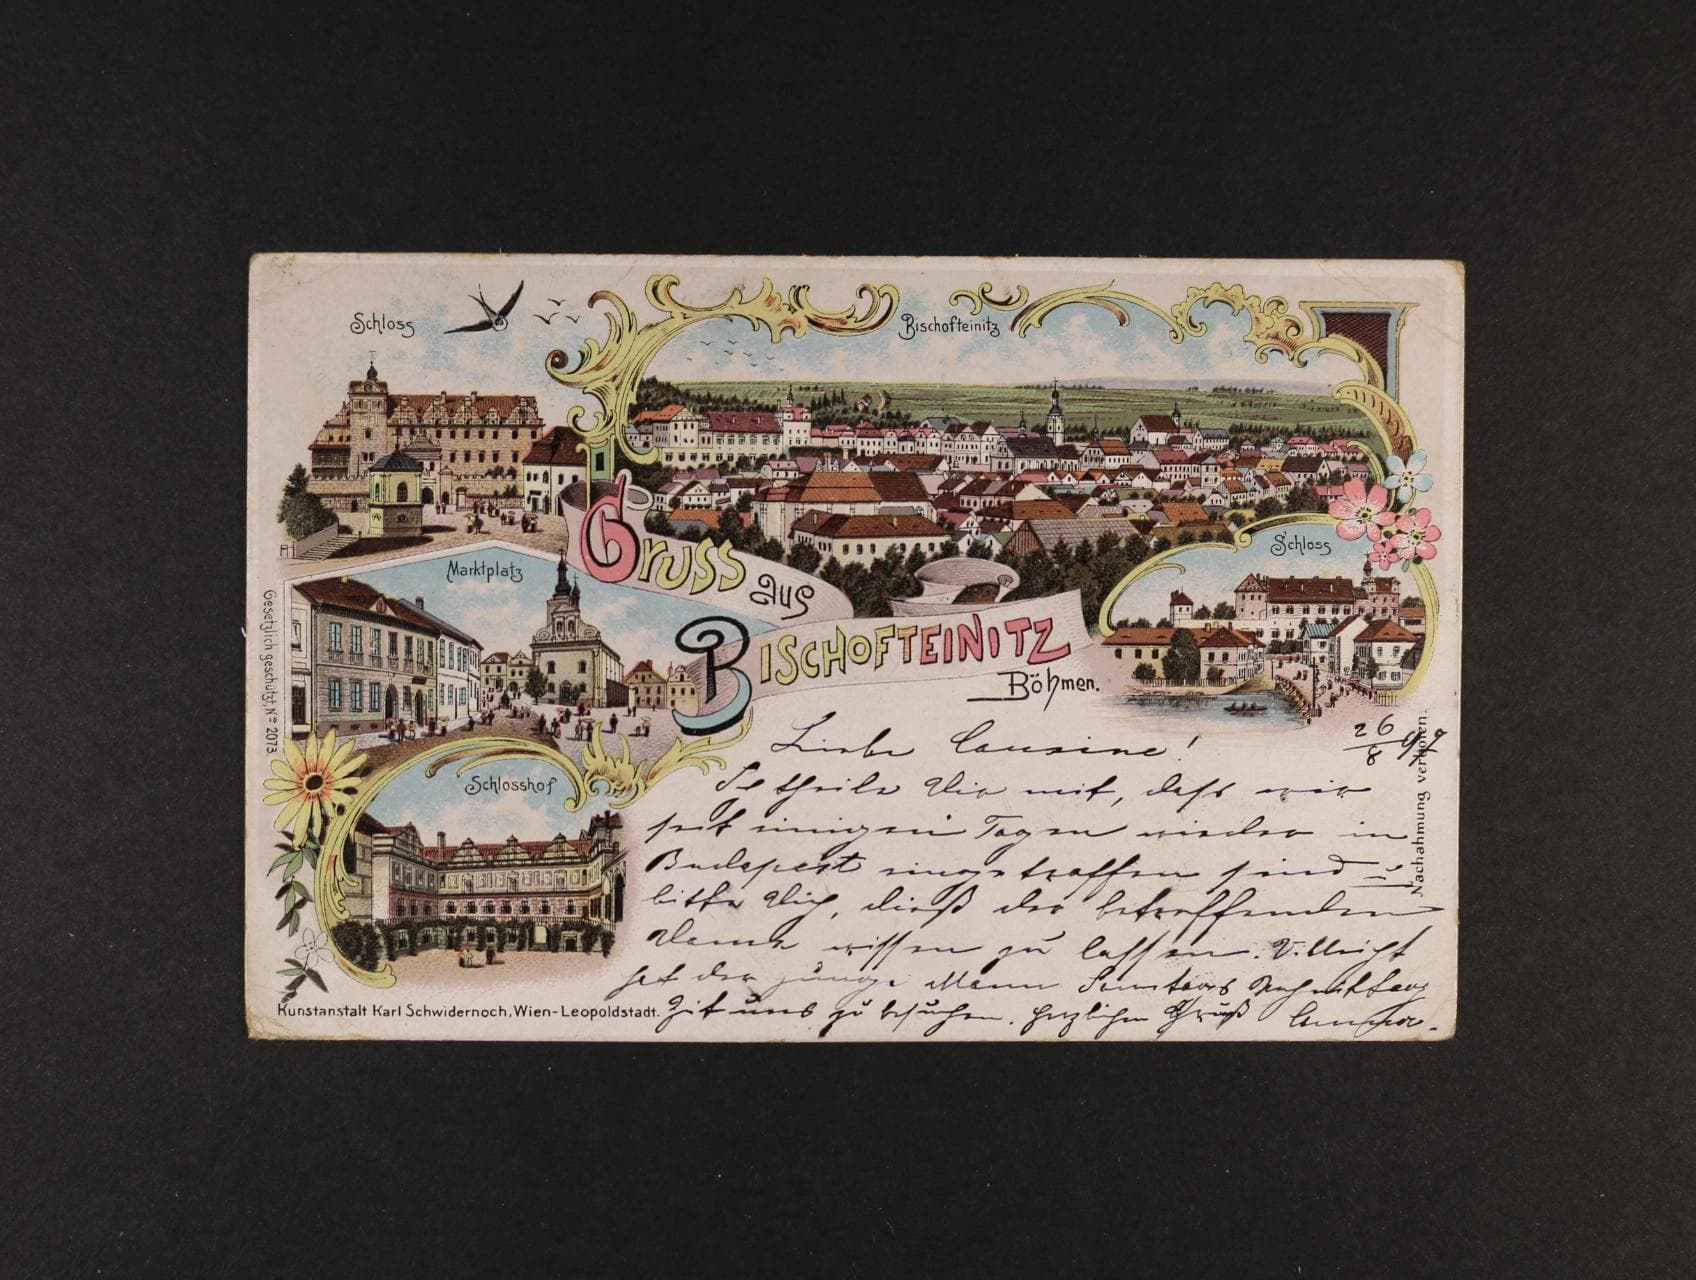 Schloss
Bischofteinitz
Gruss aus
Bischofteinitz
Böhmen.
Marktplatz
Schloss
Schlosshof
Gesetzlich geschützt, No 2073
Nachahmung verboten.
Kunstanstalt Karl Schwidernoch, Wien-Leopoldstadt.
26/8 97
Liebe Cousine!
theile Dir mit, daß wir
seit einigen Tagen wieder in
Budapest eingetroffen sind u
bitte Dich, dieß der betreffenden
Dame wissen zu lassen. Vielleicht
hat der junge Mann Samstags Nachmittag
Zeit uns zu besuchen. Herzlichen Gruß